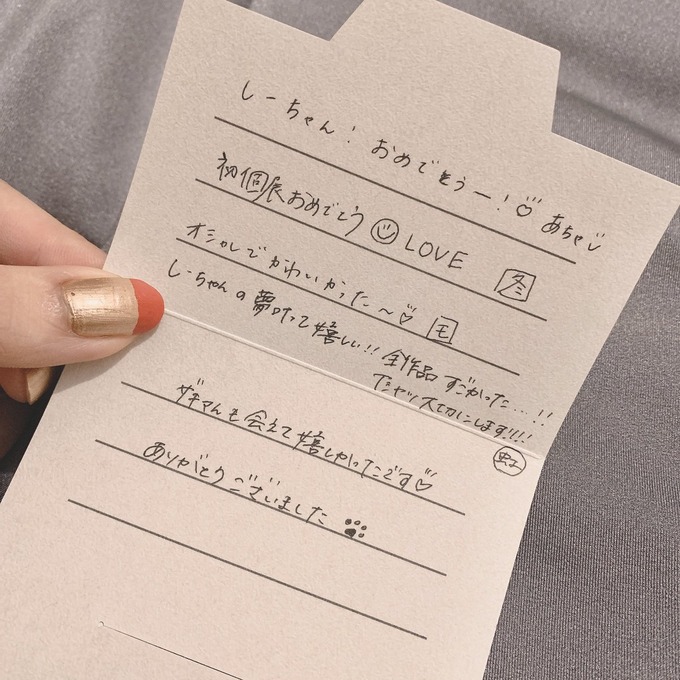 しーちゃん！おめでとうー！♡ あちゃ
初個展おめでとう☺LOVE 冬
オシャレでかわいかった〜♡ 王
しーちゃんの夢叶って嬉しい!! 全作品すごかった...!!
Tシャツ大切にします!!!
ザキマんも会えて嬉しかったです♡
ありがとうございました